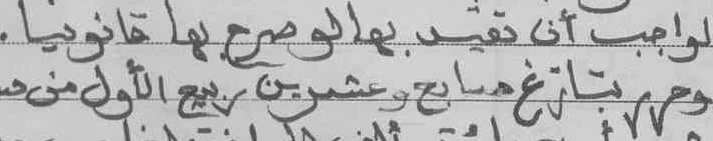 لواجب أن تقيد بها لو صرح بها قانونيا.
وحرر بتارغ سابع وعشرين ربيع الأول من